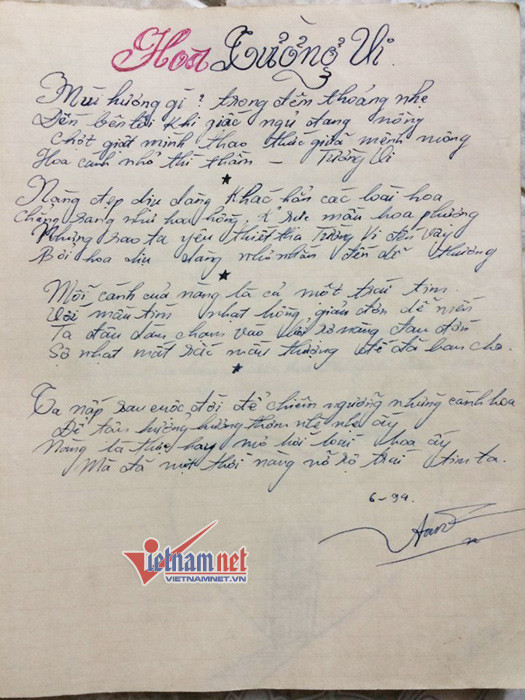 Hoa Tường Vi
Mùi hương gì? trong đêm thoáng nhẹ
Đến bên tôi khi giấc ngủ đang nồng
Chợt giật mình thao thức giữa mênh mông
Hoa cánh nhỏ thì thầm - Tường Vi
Nàng đẹp dịu dàng khác hẳn các loài hoa
Chẳng sang như hoa hồng, k rực màu hoa phượng
Nhưng sao ta yêu thiết tha Tường Vi đến vậy
Bởi hoa dịu dàng nhẫn đến dễ thương
Mỗi cánh của nàng là cả một trái tim
Với màu tím nhạt hồng, giản đơn dễ mến
Ta đâu dám chạm vào vì sợ nàng đau đớn
Sợ nhạt mất sắc màu thượng đế đã ban cho.
Ta nấp sau cuộc đời để chiêm ngưỡng những cánh hoa
Để tận hưởng hương thơm nhè nhẹ ấy
Nàng là thực hay mơ hỡi loài hoa ấy
Mà đã một thời nàng nở rộ trái tim ta.
6-99.
Vietnamnet
VIETNAMNET.VN